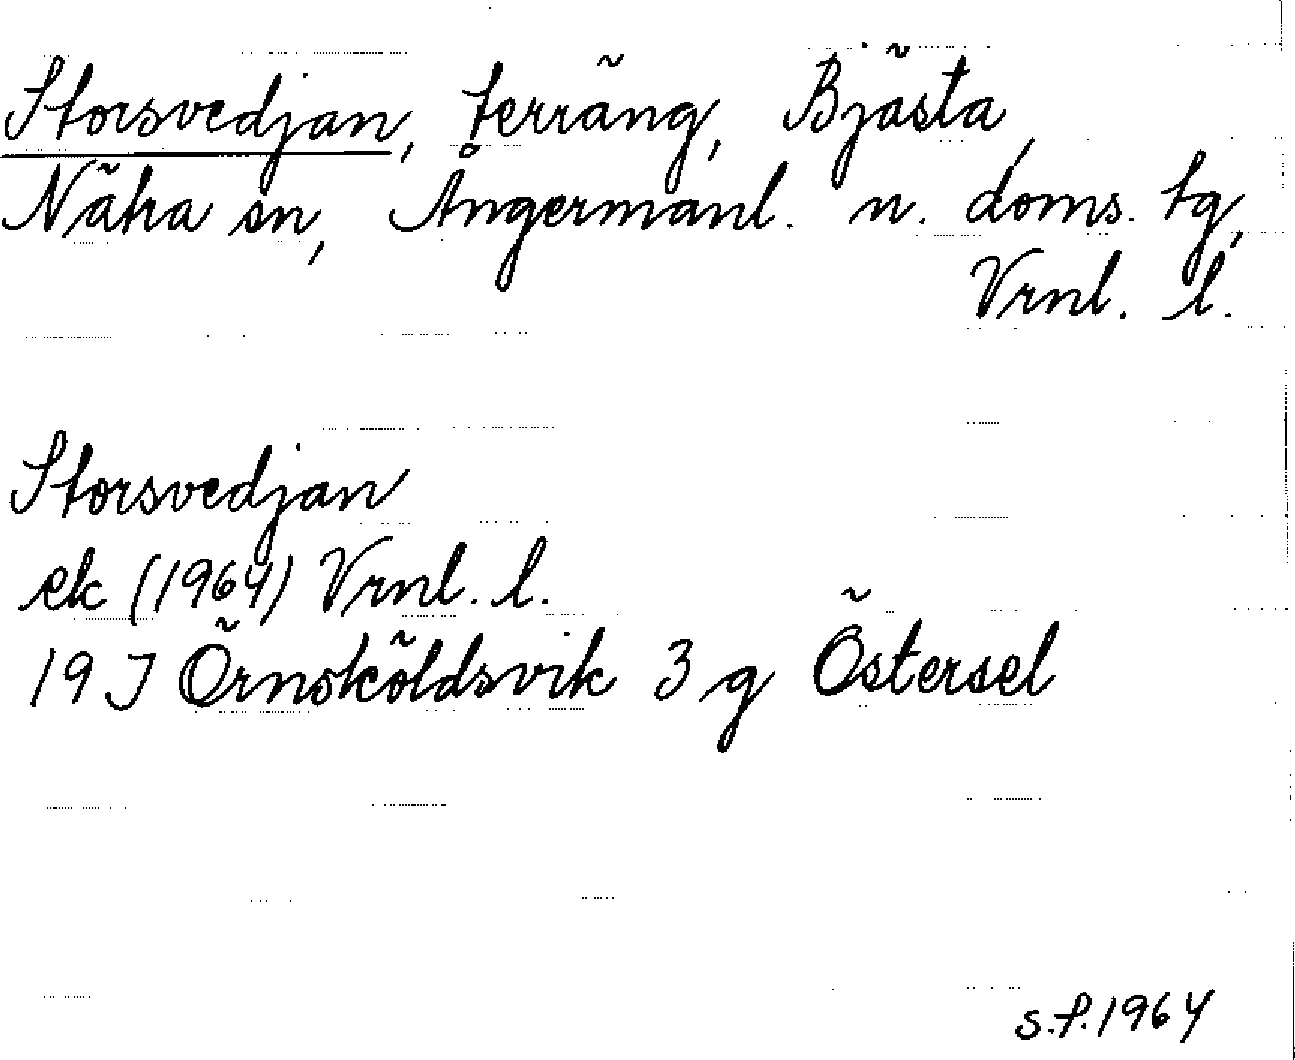 Storsvedjan, terräng, Bjästa,
Näha sn, Ångermanl. n. doms. tg,
Vrnl. l.
Storsvedjan
ek (1964) Vrnl. l.
19 J Örnsköldsvik 3 g Östersel
s.f. 1964